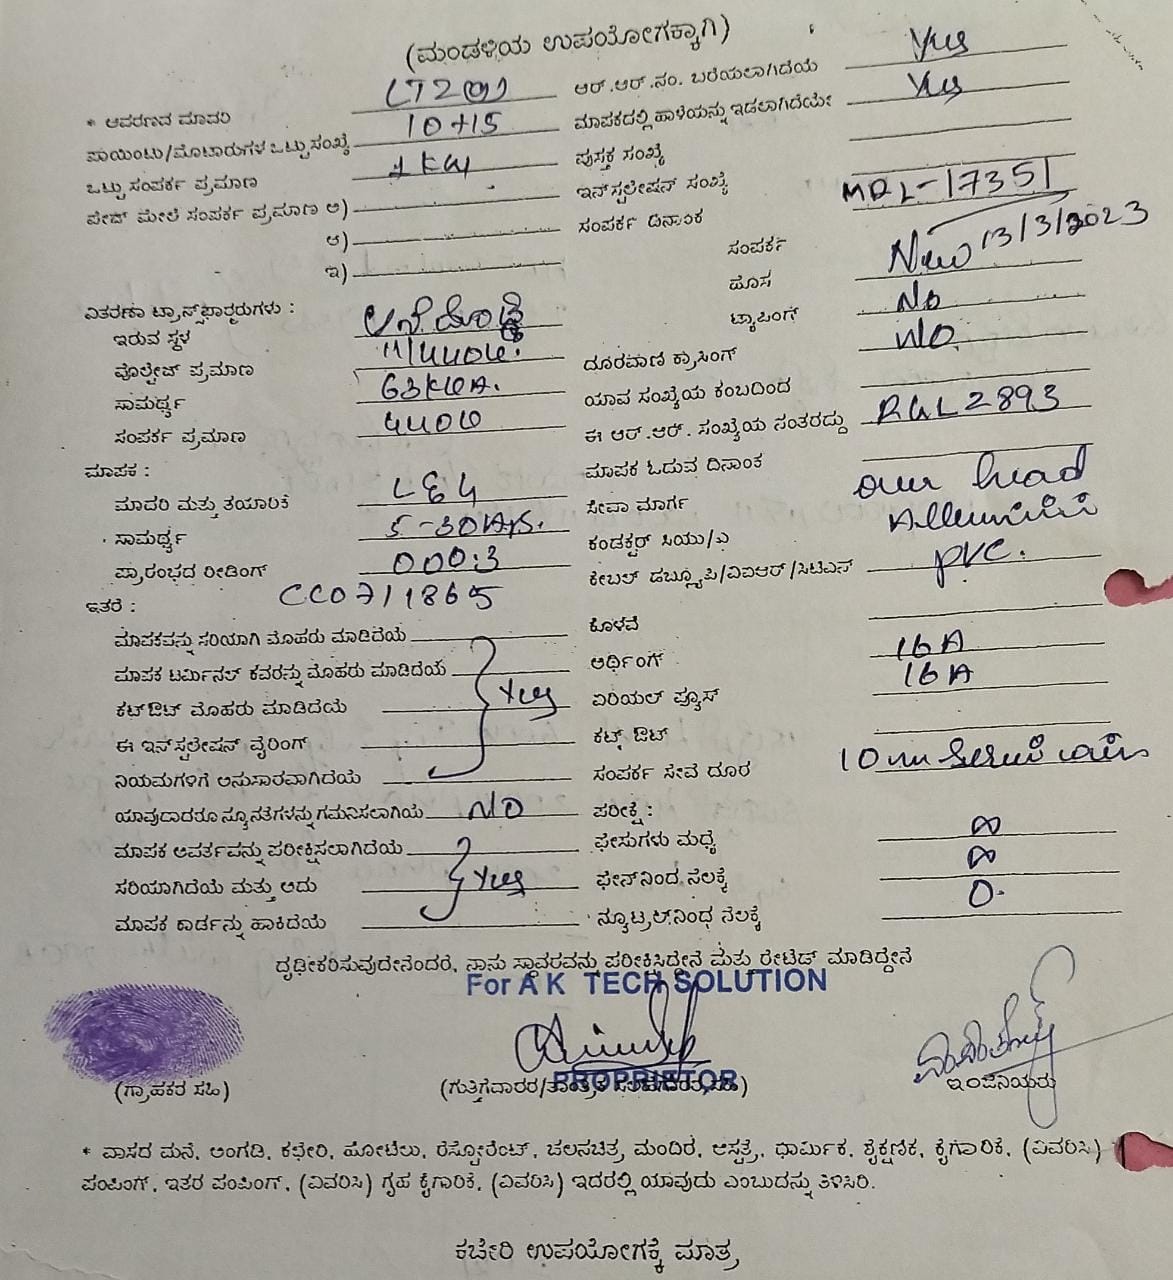 (ಮಂಡಳಿಯ ಉಪಯೋಗಕ್ಕಾಗಿ)
* ಆವರಣದ ಮಾದರಿ LT2(a) ಆರ್.ಆರ್.ನಂ. ಬರೆಯಲಾಗಿದೆಯೆ Yes
ಪಾಯಿಂಟು/ಮೋಟಾರುಗಳ ಒಟ್ಟು ಸಂಖ್ಯೆ 10+15 ಮಾಪಕದಲ್ಲಿ ಹಾಳೆಯನ್ನು ಇಡಲಾಗಿದೆಯೇ Yes
ಒಟ್ಟು ಸಂಪರ್ಕ ಪ್ರಮಾಣ 1 KW ಪುಸ್ತಕ ಸಂಖ್ಯೆ
ಪೇಜ್ ಮೇಲೆ ಸಂಪರ್ಕ ಪ್ರಮಾಣ ಅ) ಇನ್‌ಸ್ಟಲೇಷನ್ ಸಂಖ್ಯೆ MDL-17351
ಆ) ಸಂಪರ್ಕ ದಿನಾಂಕ 13/3/2023
ಇ) ಸಂಪರ್ಕ New
ಹೊಸ No
ವಿತರಣಾ ಟ್ರಾನ್ಸ್‌ಫಾರ್ಮರುಗಳು : ಟ್ಯಾಪಿಂಗ್ No
ಇರುವ ಸ್ಥಳ
ವೋಲ್ಟೇಜ್ ಪ್ರಮಾಣ 11/440V. ದೂರವಾಣಿ ಕ್ರಾಸಿಂಗ್
ಸಾಮರ್ಥ್ಯ 63KVA. ಯಾವ ಸಂಖ್ಯೆಯ ಕಂಬದಿಂದ
ಸಂಪರ್ಕ ಪ್ರಮಾಣ 440V ಈ ಆರ್.ಆರ್. ಸಂಖ್ಯೆಯ ನಂತರದ್ದು RGL2893
ಮಾಪಕ : ಮಾಪಕ ಓದುವ ದಿನಾಂಕ
ಮಾದರಿ ಮತ್ತು ತಯಾರಿಕೆ L&G ಸೇವಾ ಮಾರ್ಗ over head
ಸಾಮರ್ಥ್ಯ 5-30 ಕಂಡಕ್ಟರ್ ಸಿಯು/ಎ
ಪ್ರಾರಂಭದ ರೀಡಿಂಗ್ 000.3 ಕೇಬಲ್ ಡಬ್ಲ್ಯೂಪಿ/ವಿಐಆರ್/ಸಿಟಿಎಸ್ PVC.
ಇತರೆ : CC0711865
ಮಾಪಕವನ್ನು ಸರಿಯಾಗಿ ಮೊಹರು ಮಾಡಿದೆಯೆ ಕೊಳವೆ
ಮಾಪಕ ಟರ್ಮಿನಲ್ ಕವರನ್ನು ಮೊಹರು ಮಾಡಿದೆಯೆ ಅರ್ಥಿಂಗ್ 16A
ಕಟ್‌ಔಟ್ ಮೊಹರು ಮಾಡಿದೆಯೆ Yes ಏರಿಯಲ್ ಫ್ಯೂಸ್ 16A
ಈ ಇನ್‌ಸ್ಟಲೇಷನ್ ವೈರಿಂಗ್ ಕಟ್ಟ್ ಔಟ್
ನಿಯಮಗಳಿಗೆ ಅನುಸಾರವಾಗಿದೆಯೆ ಸಂಪರ್ಕ ಸೇವೆ ದೂರ 10 m
ಯಾವುದಾದರೂ ನ್ಯೂನತೆಗಳನ್ನು ಗಮನಿಸಲಾಗಿಯೆ NO ಪರೀಕ್ಷೆ :
ಮಾಪಕ ಆವರ್ತವನ್ನು ಪರೀಕ್ಷಿಸಲಾಗಿದೆಯೆ ಫೇಸುಗಳು ಮಧ್ಯೆ ∞
ಸರಿಯಾಗಿದೆಯೆ ಮತ್ತು ಅದು Yes ಫೇಸ್‌ನಿಂದ ನೆಲಕ್ಕೆ ∞
ಮಾಪಕ ಕಾರ್ಡನ್ನು ಹಾಕಿದೆಯೆ ನ್ಯೂಟ್ರಲ್‌ನಿಂಧ ನೆಲಕ್ಕೆ 0.
ದೃಢೀಕರಿಸುವುದೇನೆಂದರೆ, ನಾನು ಸ್ಥಾವರವನ್ನು ಪರೀಕ್ಷಿಸಿದ್ದೇನೆ ಮತ್ತು ರೇಟೆಡ್ ಮಾಡಿದ್ದೇನೆ
For A K TECH SOLUTION
PROPRIETOR
(ಗ್ರಾಹಕರ ಸಹಿ) (ಗುತ್ತಿಗೆದಾರರ/ ಇಂಜಿನಿಯರು
* ವಾಸದ ಮನೆ, ಅಂಗಡಿ, ಕಛೇರಿ, ಹೋಟೆಲು, ರೆಸ್ಟೋರೆಂಟ್, ಚಲನಚಿತ್ರ ಮಂದಿರ, ಆಸ್ಪತ್ರೆ, ಧಾರ್ಮಿಕ, ಶೈಕ್ಷಣಿಕ, ಕೈಗಾರಿಕೆ, (ವಿವರಿಸಿ)
ಪಂಪಿಂಗ್, ಇತರ ಪಂಪಿಂಗ್, (ವಿವರಿಸಿ) ಗೃಹ ಕೈಗಾರಿಕೆ, (ವಿವರಿಸಿ) ಇದರಲ್ಲಿ ಯಾವುದು ಎಂಬುದನ್ನು ತಿಳಿಸಿರಿ.
ಕಚೇರಿ ಉಪಯೋಗಕ್ಕೆ ಮಾತ್ರ